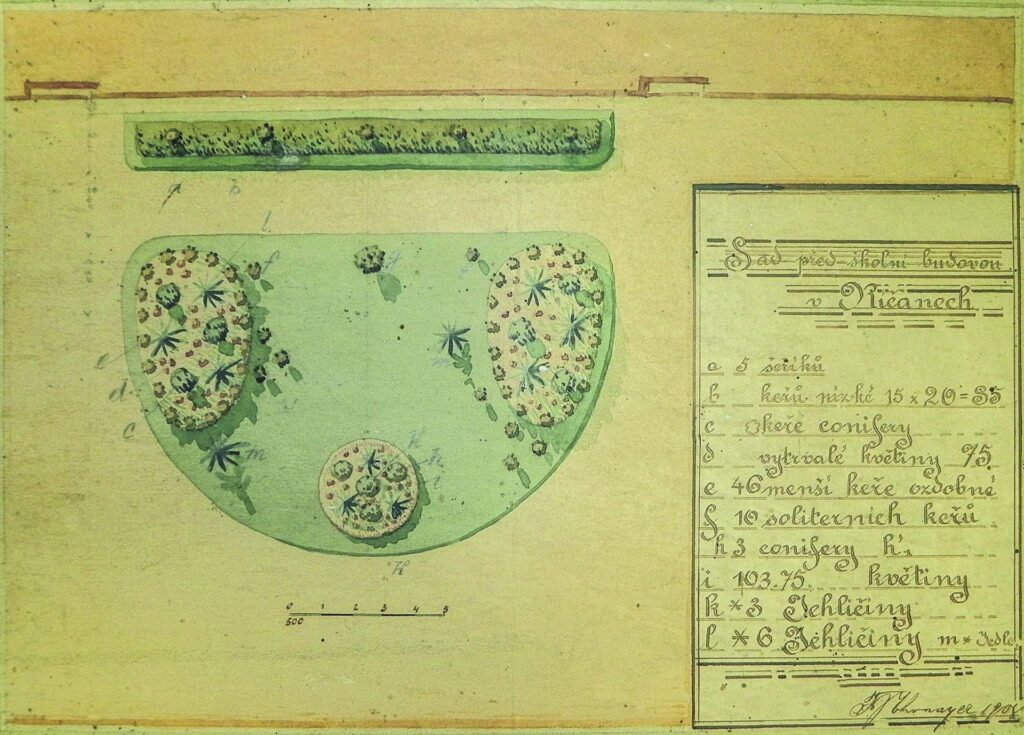 Sad před školní budovou
v Říčanech
a 5 šeříků
b keřů nízké 15 x 20 = 35
c okeře conifery
d vytrvalé květiny 75.
e 46 menší keře ozdobné
f 10 soliterních keřů
h 3 conifery h'.
i 103.75. květiny
k * 3 Jehličiny
l * 6 Jehličiny m * Jedle
F J Thomayer
a b
l
f
e
d
c
m
h
i
0 1 2 3 4 5
500